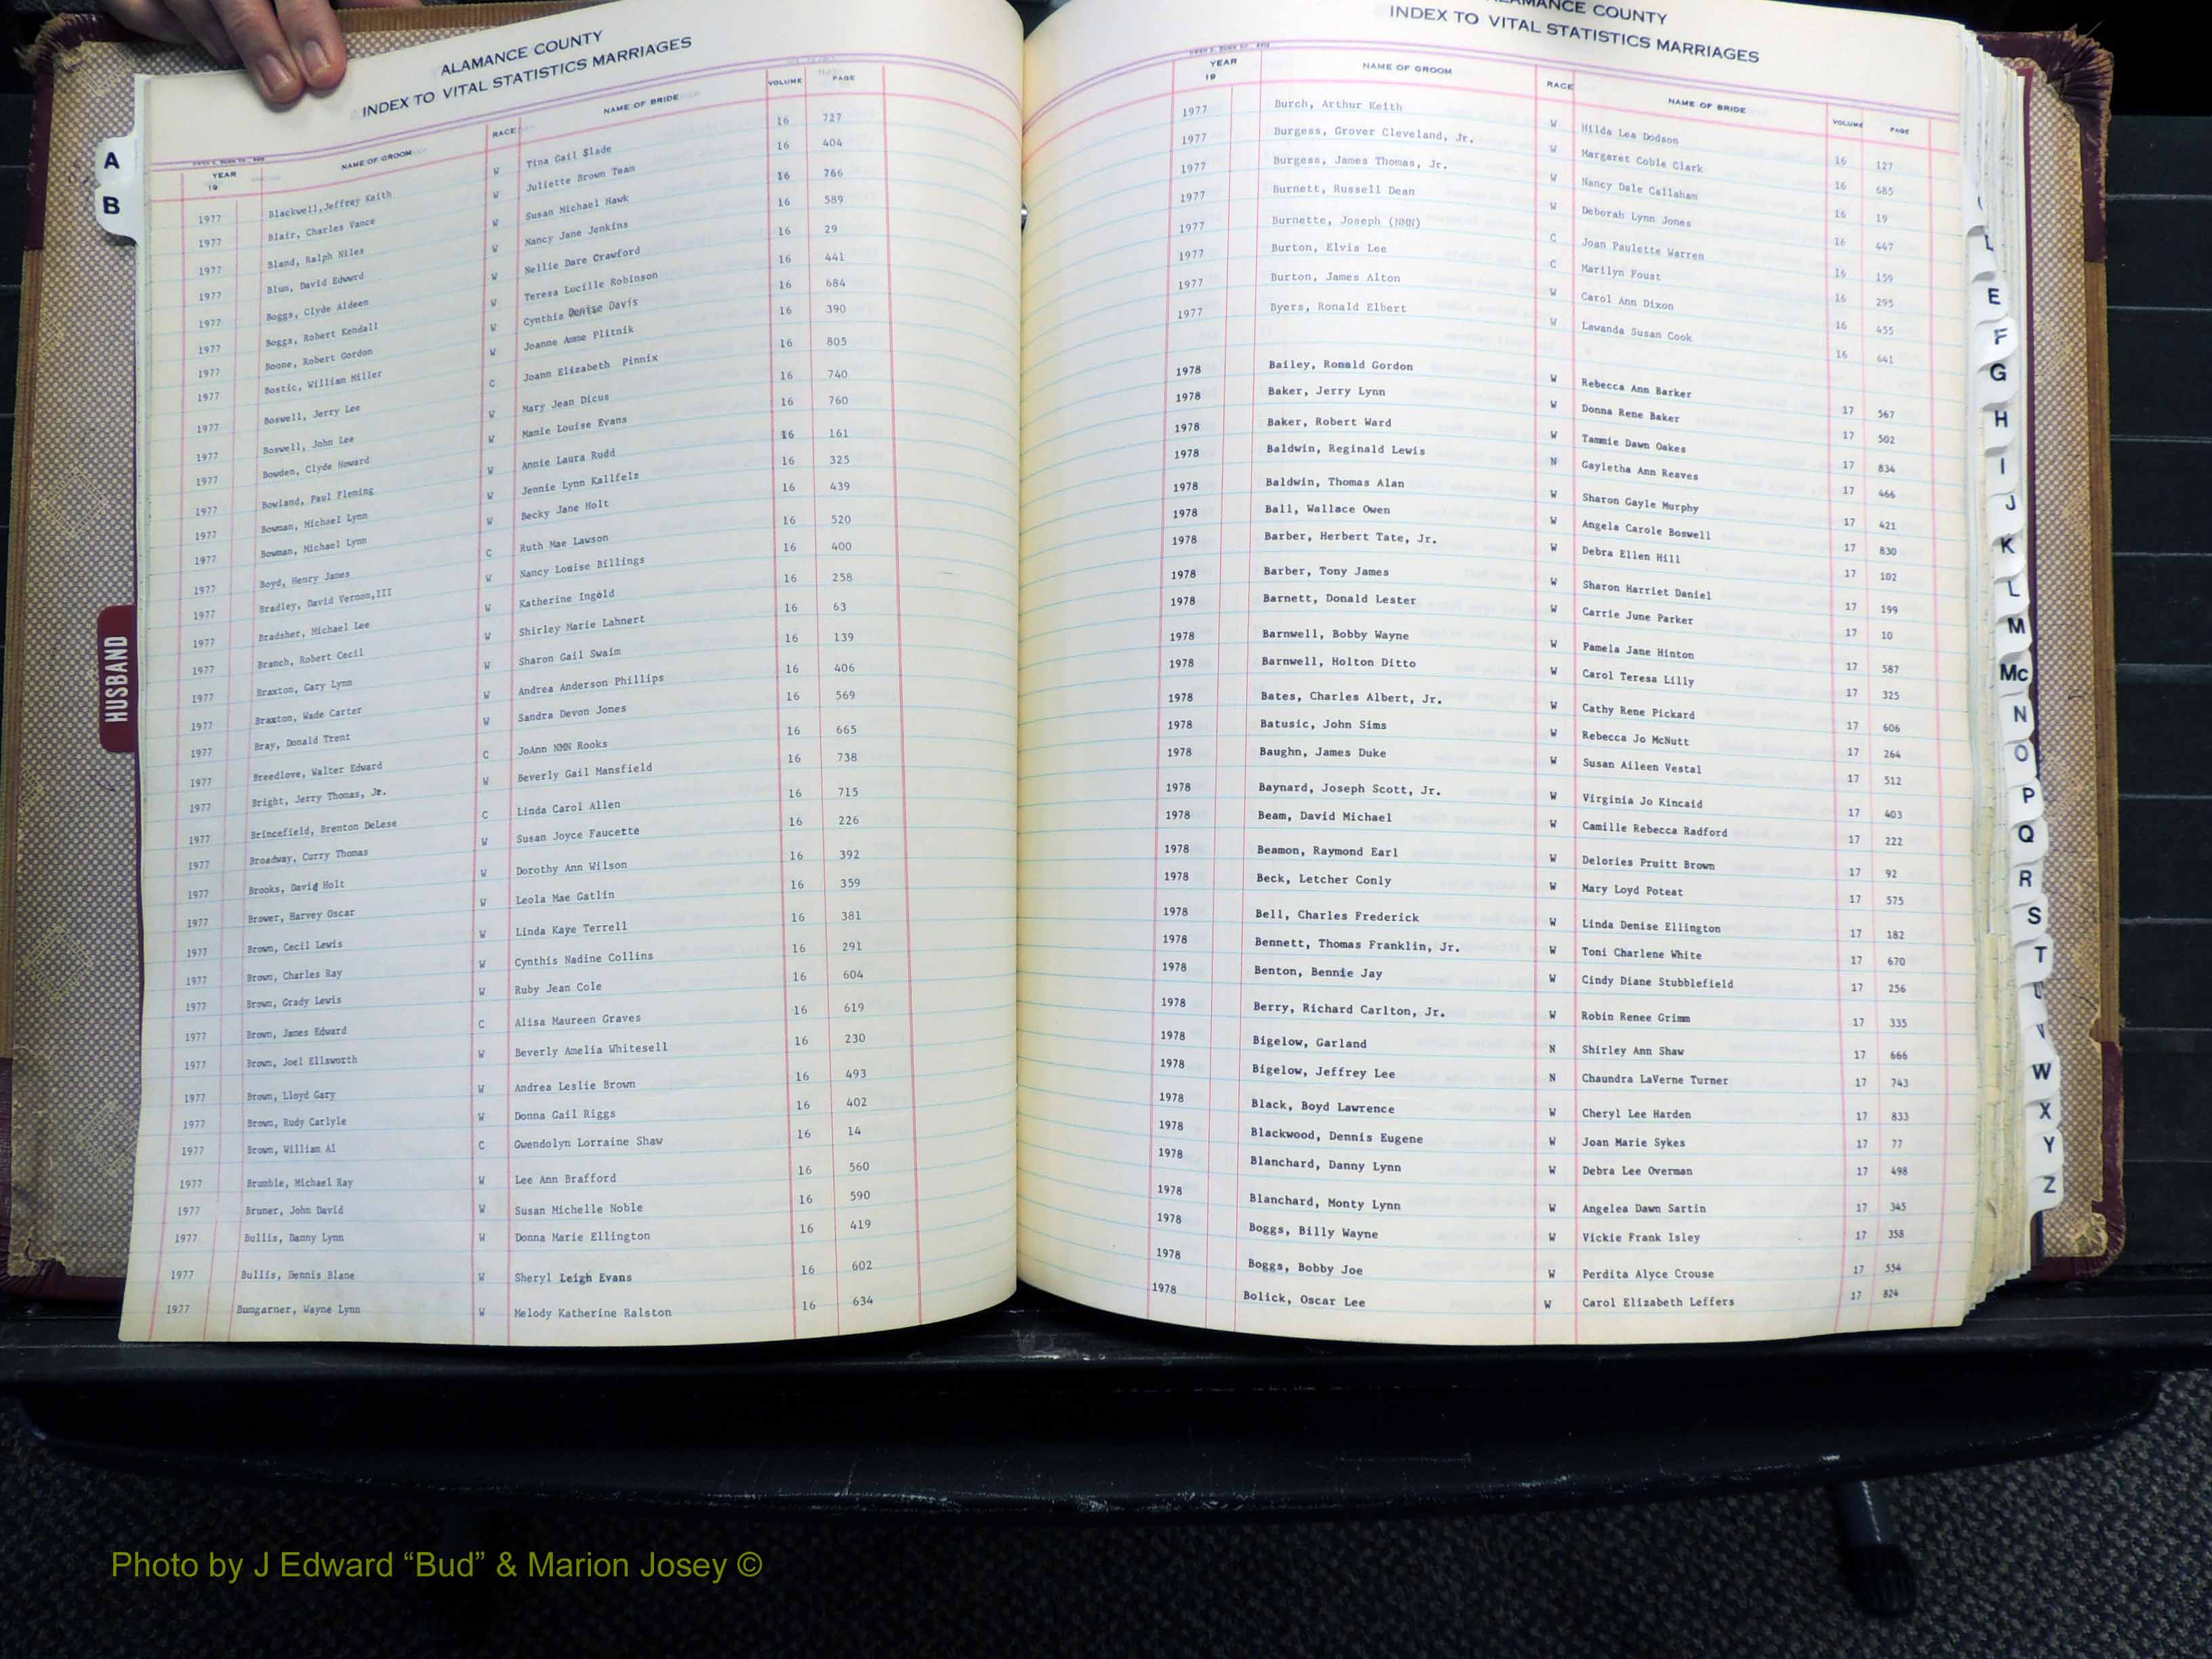 A
B
HUSBAND
ALAMANCE COUNTY
INDEX TO VITAL STATISTICS MARRIAGES
YEAR 19 NAME OF GROOM RACE NAME OF BRIDE VOLUME PAGE
1977 Blackwell,Jeffrey Keith W Tina Gail Slade 16 727
1977 Blair, Charles Vance W Juliette Brown Team 16 404
1977 Bland, Ralph Niles W Susan Michael Hawk 16 766
1977 Blum, David Edward W Nancy Jane Jenkins 16 589
1977 Boggs, Clyde Aldeen W Nellie Dare Crawford 16 29
1977 Boggs, Robert Kendall W Teresa Lucille Robinson 16 441
1977 Boone, Robert Gordon W Cynthia Denise Davis 16 684
1977 Bostic, William Miller W Joanne Amme Plitnik 16 390
1977 Boswell, Jerry Lee C Joann Elizabeth Pinnix 16 805
1977 Boswell, John Lee W Mary Jean Dicus 16 740
1977 Bowden, Clyde Howard W Mamie Louise Evans 16 760
1977 Bowland, Paul Fleming W Annie Laura Rudd 16 161
1977 Bowman, Michael Lynn W Jennie Lynn Kallfelz 16 325
1977 Bowman, Michael Lynn W Becky Jane Holt 16 439
1977 Boyd, Henry James C Ruth Mae Lawson 16 520
1977 Bradley, David Vernon,III W Nancy Louise Billings 16 400
1977 Bradsher, Michael Lee W Katherine Ingold 16 258
1977 Branch, Robert Cecil W Shirley Marie Lahnert 16 63
1977 Braxton, Gary Lynn W Sharon Gail Swaim 16 139
1977 Braxton, Wade Carter W Andrea Anderson Phillips 16 406
1977 Bray, Donald Trent W Sandra Devon Jones 16 569
1977 Breedlove, Walter Edward C JoAnn NMN Rooks 16 665
1977 Bright, Jerry Thomas, Jr. W Beverly Gail Mansfield 16 738
1977 Brincefield, Brenton DeLese C Linda Carol Allen 16 715
1977 Broadway, Curry Thomas W Susan Joyce Faucette 16 226
1977 Brooks, David Holt W Dorothy Ann Wilson 16 392
1977 Brower, Harvey Oscar W Leola Mae Gatlin 16 359
1977 Brown, Cecil Lewis W Linda Kaye Terrell 16 381
1977 Brown, Charles Ray W Cynthis Nadine Collins 16 291
1977 Brown, Grady Lewis W Ruby Jean Cole 16 604
1977 Brown, James Edward C Alisa Maureen Graves 16 619
1977 Brown, Joel Ellsworth W Beverly Amelia Whitesell 16 230
1977 Brown, Lloyd Gary W Andrea Leslie Brown 16 493
1977 Brown, Rudy Carlyle W Donna Gail Riggs 16 402
1977 Brown, William Al C Gwendolyn Lorraine Shaw 16 14
1977 Brumble, Michael Ray W Lee Ann Brafford 16 560
1977 Bruner, John David W Susan Michelle Noble 16 590
1977 Bullis, Danny Lynn W Donna Marie Ellington 16 419
1977 Bullis, Dennis Blane W Sheryl Leigh Evans 16 602
1977 Bumgarner, Wayne Lynn W Melody Katherine Ralston 16 634
ALAMANCE COUNTY
INDEX TO VITAL STATISTICS MARRIAGES
YEAR 19 NAME OF GROOM RACE NAME OF BRIDE VOLUME PAGE
1977 Burch, Arthur Keith W Hilda Lea Dodson 16 127
1977 Burgess, Grover Cleveland, Jr. W Margaret Coble Clark 16 685
1977 Burgess, James Thomas, Jr. W Nancy Dale Callaham 16 19
1977 Burnett, Russell Dean W Deborah Lynn Jones 16 447
1977 Burnette, Joseph (NMN) C Joan Paulette Warren 16 159
1977 Burton, Elvis Lee C Marilyn Foust 16 295
1977 Burton, James Alton W Carol Ann Dixon 16 455
1977 Byers, Ronald Elbert W Lawanda Susan Cook 16 641
1978 Bailey, Ronald Gordon W Rebecca Ann Barker 17 567
1978 Baker, Jerry Lynn W Donna Rene Baker 17 502
1978 Baker, Robert Ward W Tammie Dawn Oakes 17 834
1978 Baldwin, Reginald Lewis N Gayletha Ann Reaves 17 466
1978 Baldwin, Thomas Alan W Sharon Gayle Murphy 17 421
1978 Ball, Wallace Owen W Angela Carole Boswell 17 830
1978 Barber, Herbert Tate, Jr. W Debra Ellen Hill 17 102
1978 Barber, Tony James W Sharon Harriet Daniel 17 199
1978 Barnett, Donald Lester W Carrie June Parker 17 10
1978 Barnwell, Bobby Wayne W Pamela Jane Hinton 17 587
1978 Barnwell, Holton Ditto W Carol Teresa Lilly 17 325
1978 Bates, Charles Albert, Jr. W Cathy Rene Pickard 17 606
1978 Batusic, John Sims W Rebecca Jo McNutt 17 264
1978 Baughn, James Duke W Susan Aileen Vestal 17 512
1978 Baynard, Joseph Scott, Jr. W Virginia Jo Kincaid 17 403
1978 Beam, David Michael W Camille Rebecca Radford 17 222
1978 Beamon, Raymond Earl W Delories Pruitt Brown 17 92
1978 Beck, Letcher Conly W Mary Loyd Poteat 17 575
1978 Bell, Charles Frederick W Linda Denise Ellington 17 182
1978 Bennett, Thomas Franklin, Jr. W Toni Charlene White 17 670
1978 Benton, Bennie Jay W Cindy Diane Stubblefield 17 256
1978 Berry, Richard Carlton, Jr. W Robin Renee Grimm 17 335
1978 Bigelow, Garland N Shirley Ann Shaw 17 666
1978 Bigelow, Jeffrey Lee N Chaundra LaVerne Turner 17 743
1978 Black, Boyd Lawrence W Cheryl Lee Harden 17 833
1978 Blackwood, Dennis Eugene W Joan Marie Sykes 17 77
1978 Blanchard, Danny Lynn W Debra Lee Overman 17 498
1978 Blanchard, Monty Lynn W Angelea Dawn Sartin 17 345
1978 Boggs, Billy Wayne W Vickie Frank Isley 17 358
1978 Boggs, Bobby Joe W Perdita Alyce Crouse 17 554
1978 Bolick, Oscar Lee W Carol Elizabeth Leffers 17 824
E
F
G
H
I
J
K
L
M
Mc
N
O
P
Q
R
S
T
U
V
W
X
Y
Z
Photo by J Edward “Bud” & Marion Josey ©